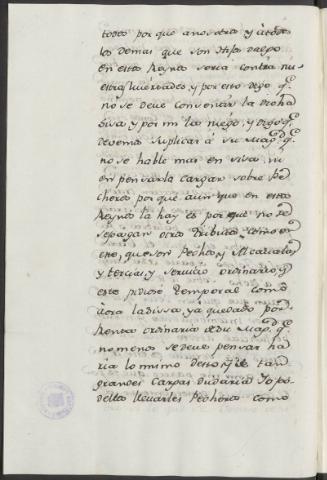 todos por que a nosotros y à todos
los demas que son Hijos dalgo
en estos Reynos seria contra nu
estras livertades, y por esto digo q.e
no se deve consentir la dicha
sisa y por mi la niego, y digo q.e
devemos suplicar à su Mag.d q.e
no se hable mas en sisa, ni
en pensarla cargar sobre Pe
cheros por que aunque en estos
Reynos la hay es por que no se
se pagan otros tributos como en
este, que son Pechos, y Alcavalas,
y tercias, y servicio ordinario, q.e
este pidiose temporal como
aora la sissa ya quedado por
Renta ordinaria de su Mag.d q.e
no menos se deve pensar ha
ria lo mismo desto, y de tan
grandes Cargas dudaria Yo po
dello llevarles Pecheros como